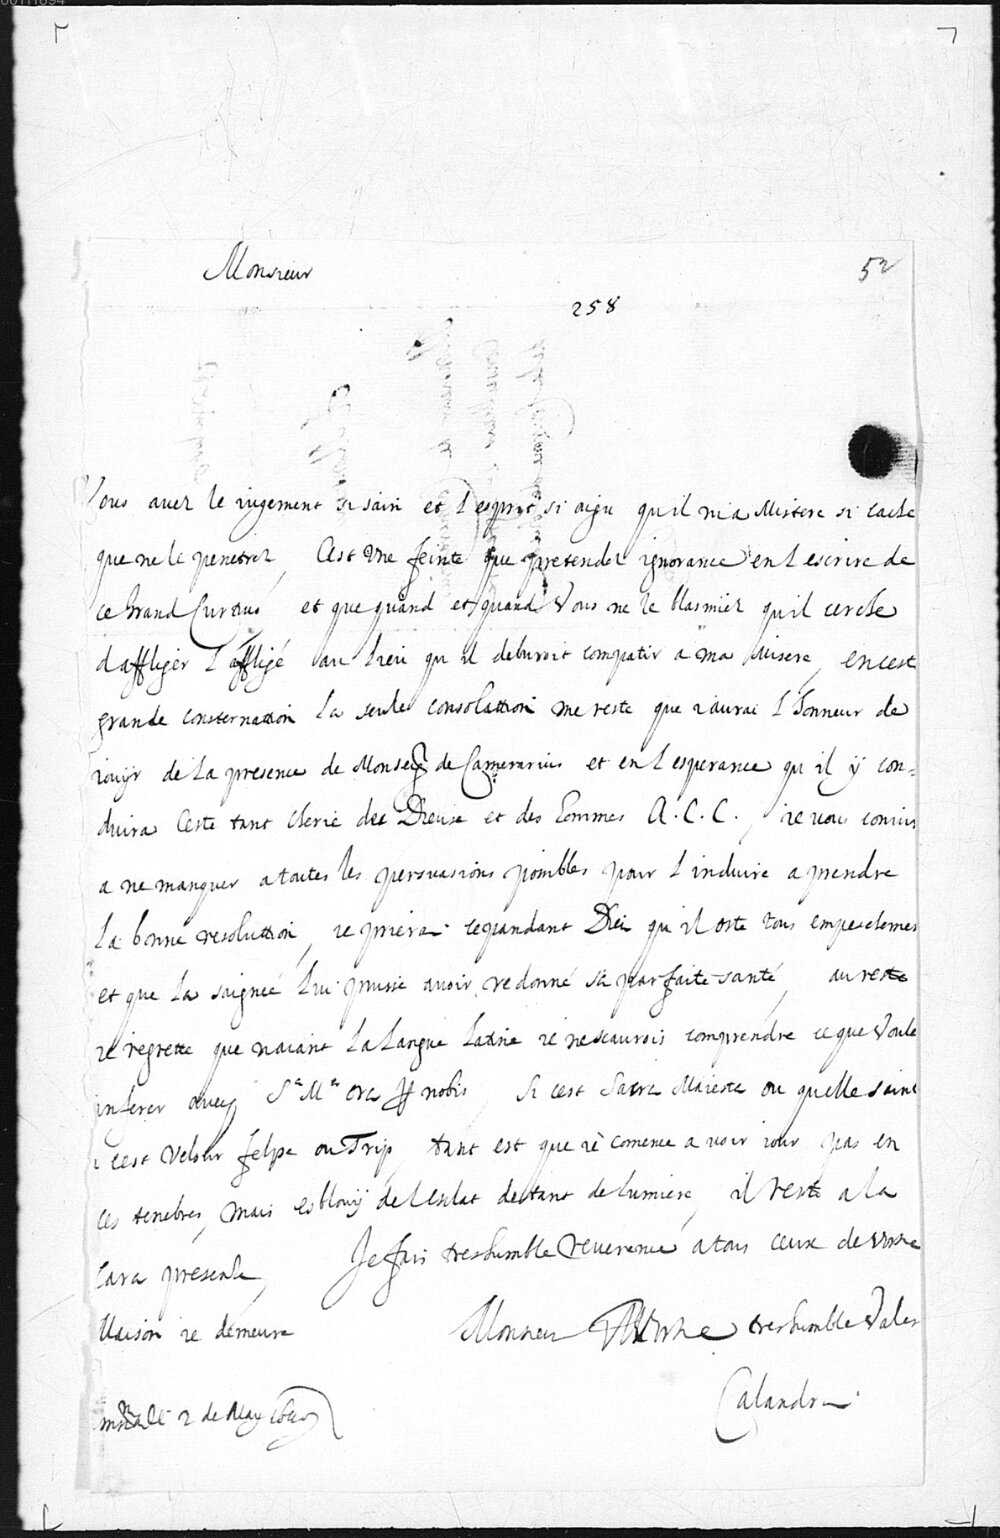 00111894
Monsieur
52
258
Vous avez le iugement si sain et l esprit si aigu qu il nia Mistere si cache
que ne le penetrez, Cest une feinte que pretendez ignorance en l escrire de
ce Grand Curtius et que quand et quand Vous ne le blasmiez qu il cerche
d affliger l affligé au lieu qu il deburoit compatir a ma Misere, en cest
grande consternation la seule consolation me reste que i aurai l honneur de
iouÿr de la presence de Monseig de Camerarius et en l esperance qu il ÿ con=
duira Ceste tant cherie des Dieus et des hommes A. C. C., ie vous coniure
a ne manquer a toutes les persuasions possibles pour l induire a prendre
la bonne resolution, ie prierai cependant Dieu qu il oste tous empechemens
et que la saignée lui puisse avoir redonné sa parfaite santé, au reste
ie regrette que n aiant la langue latine ie ne scaurois comprendre ce que voule
inserer avec S M ora nobis, Si c est Sacra Maiesta ou quelle saint
c est Velour felpe ou Trip, tant est que ie comence a voir iour pas en
ces tenebres, mais esblouÿ de l esclat de tant de lumiere, il reste a la
cara presenle, Je fais treshumble reverence a tous ceux de vostre
Maison ie demeure
Monsieur Vostre treshumble Valet
Calandrin
2 de May